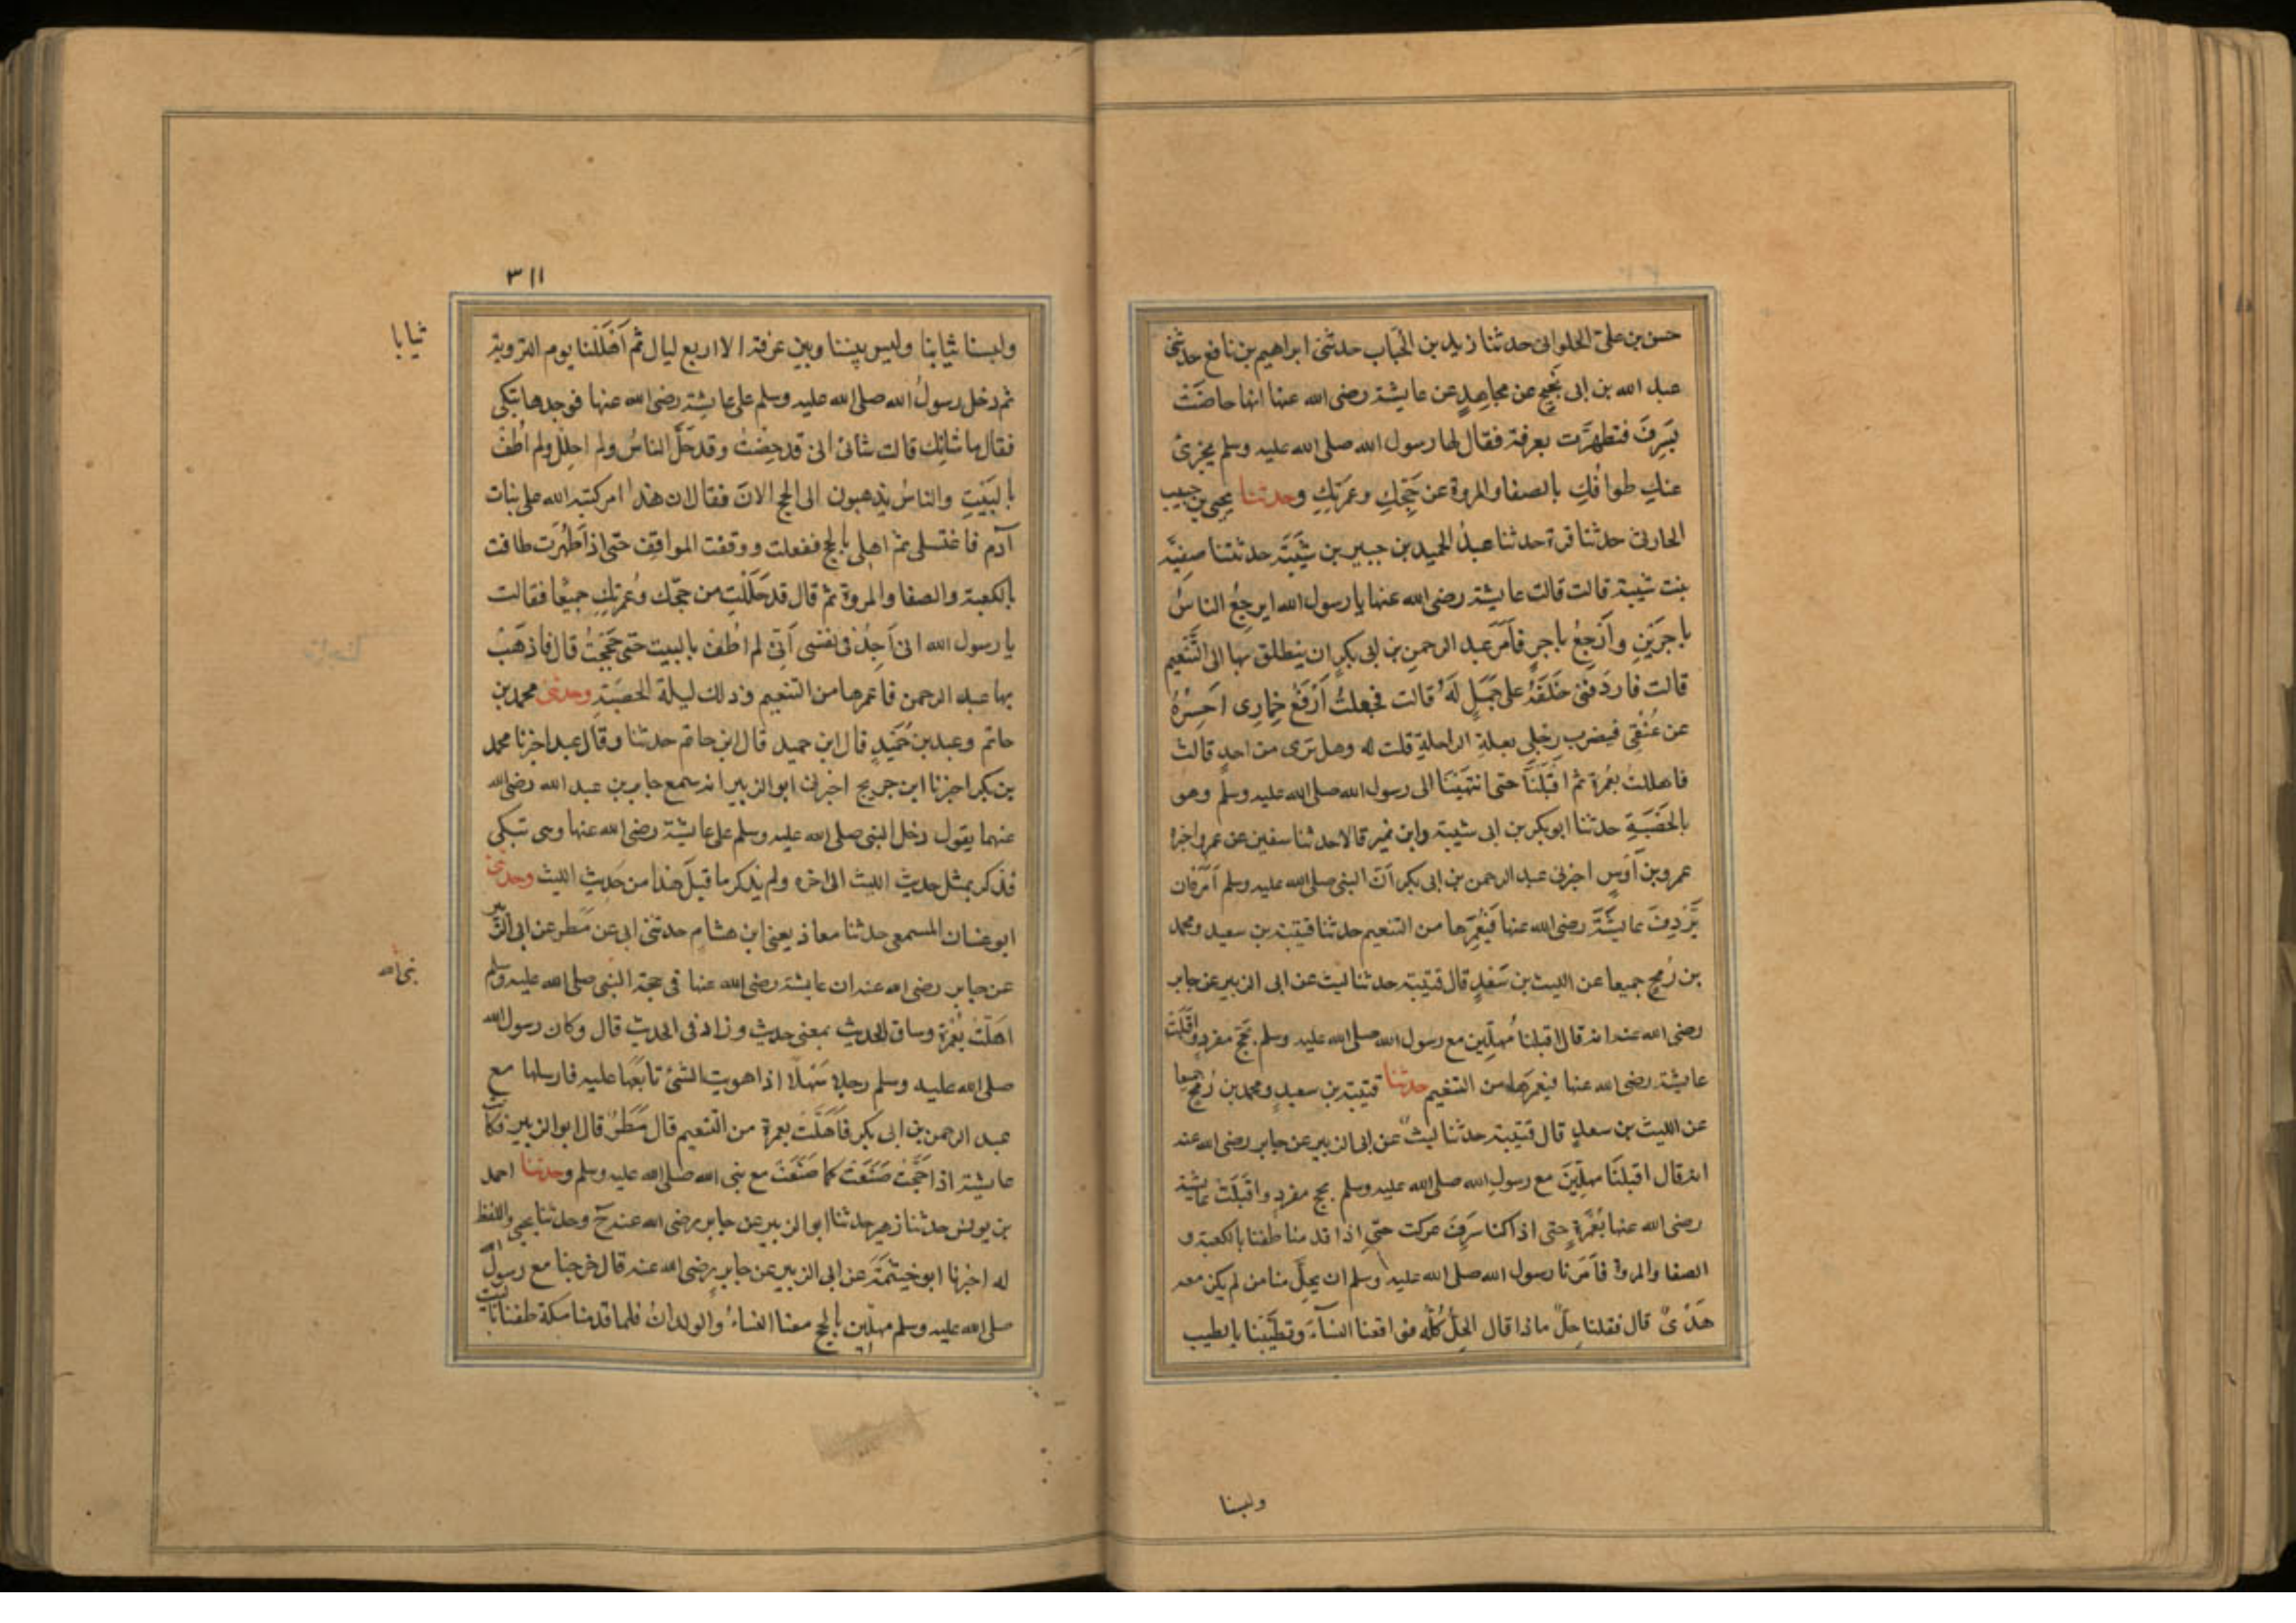 حسن بن على الحلوانى حدثنا زيد بن الحُباب حدثنى ابراهيم بن نافع حدثنى
عبد الله بن ابى نَجِيحٍ عن مجاهدٍ عن عايشة رضى الله عنها انها حاضَتْ
بسَرِفَ فتطهرَت بعرفة فقال لها رسول الله صلى الله عليه وسلم يجزئ
عنكِ طوافُكِ بالصفا والمروة عن حَجِّكِ وعمرَتِكِ وحدثنا يحيى بن حبيب
الحارثى حدثنا قرة حدثنا عبدُ الحميد بن جبير بن شَيْبَةَ حدثتنا صفيَّة
بنت شيبة قالت قالت عايشة رضى الله عنها يا رسول الله ايرجِعُ الناسُ
باجرَيْنِ وأَرْجِعُ باجرٍ فأَمَرَ عبد الرحمنِ بن ابى بكرٍ ان ينطلق بها الى التَّنْعيم
قالت فاردَفَنى خَلفَهُ على جَمَلٍ لَهُ قالت فجعلتُ أَرْفَعُ خِمارِى احسِرُهُ
عن عُنُقِى فيضرب رِجْلِى بعلةِ الراحلةِ قلت له وهل ترى من احدٍ قالت
فاهللتُ بعُمرة ثم اقبَلنَا حتى انتهَيْنَا الى رسول الله صلى الله عليه وسلم وهو
بالحَصْبَةِ حدثنا ابوبكر بن ابى شيبة وابن نمير قالا حدثنا سفين عن عمرو اخبره
عمرو بن اَوْسٍ اخبرنى عبد الرحمن بن ابى بكر اَنّ النبى صلى الله عليه وسلم اَمَرَهُ ان
يَرْدِفَ عايشَةَ رضى الله عنها فَيُعْمِرَها من التنعيم حدثنا قتيبة بن سعيد ومحمد
بن رُمحٍ جميعا عن الليث بن سَعْدٍ قال قتيبة حدثنا ليث عن ابى الزبير عن جابر
رضى الله عنه انه قال اقبلنا مُهلّين مع رسول الله صلى الله عليه وسلم بحَجّ مفردٍ واقبَلَتْ
عايشة رضى الله عنها فيعمرَها من التنعيم حدثنا قتيبة بن سعيدٍ ومحمد بن رُمحٍ جميعا
عن الليث بن سعدٍ قال قتيبة حدثنا ليثٌ عن ابى الزبير عن جابر رضى الله عنه
انه قال اقبلنَا مهلِّينَ مع رسولِ الله صلى الله عليه وسلم بحج مفردٍ واقبَلَتْ عايشة
رضى الله عنها بعُمْرَةٍ حتى اذا كنا سَرِفَ عركت حتى اذا قدمنا طفنا بالكعبة و
الصفا والمروة فاَمَرَنا رسول الله صلى الله عليه وسلم ان يحِلَّ منا من لم يكن معه
هَدْىٌ قال فقلنا حِلّ ماذا قال الحِلُّ كُلُّه فواقعنا النسآءَ وتطيَّبْنا بالطيب
ولبسنا
٣١١
ولبسنا ثيابنا وليس بيننا وبين عرفة الا اربع ليال ثم اَهْلَلْنا يوم التروية
ثيابا
ثم دخل رسولُ الله صلى الله عليه وسلم على عايشة رضى الله عنها فوجدها تبكى
فقال ما شانك قالت شانى انى قد حِضْتُ وقد حَلَّ الناسُ ولم احلِلْ ولم اطُفْ
بالبَيْتِ والناسُ يذهبون الى الحج الانَ فقال ان هذا امر كتبه الله على بنات
آدم فاغتسلى ثم اهلى بالحج ففعلت ووقفت المواقف حتى اذا طَهُرَت طافت
بالكعبة والصفا والمروة ثم قال قد حَلَلْتِ من حجّك وعُمرتِكِ جميعًا فقالت
يا رسول الله انى اَجِدُ فى نفسى اَنّى لم اطُفْ بالبيت حتى حَجَجْتُ قال فاذهَبْ
بها عبد الرحمن فاعمرها من التنعيم وذلك ليلة الحَصْبَةِ وحدثنى محمد بن
حاتم وعبد بن حُمَيْدٍ قال ابن حميد قال ابن حاتم حدثنا وقال عبد اخبرنا محمد
بن بكر اخبرنا ابن جريج اخبرنى ابو الزبير انه سمع جابر بن عبد الله رضى الله
عنهما يقول دخل النبى صلى الله عليه وسلم على عايشة رضى الله عنها وهى تبكى
فذكر بمثل حديث الليث الى اخره ولم يذكر ما قبلَ هذا من حَديثِ الليث وحدثنى
ابو غسان المسمعى حدثنا معاذ يعنى ابن هشامٍ حدثنى ابى عن مَطَرٍ عن ابى الزبير
عن جابر رضى الله عنه ان عايشة رضى الله عنها فى حجة النبى صلى الله عليه وسلم
نبى الله
اهَلّتْ بعُمْرة وساق الحديث بمعنى حديث وزاد فى الحديث قال وكان رسول الله
صلى الله عليه وسلم رجلا سَهْلًا اذا هويت الشئ تابَعَها عليه فارسلها مع
عبد الرحمن بن ابى بكر فاَهَلَّتْ بعمرة من التنعيم قال مَطَرٌ قال ابو الزبير فكانت
عايشة اذا حَجّتْ صَنَعَتْ كما صَنَعَتْ مع نبى الله صلى الله عليه وسلم وحدثنا احمد
بن يونس حدثنا زهير حدثنا ابو الزبير عن جابر رضى الله عنه ح وحدثنا يحيى واللفظ
له اخبرنا ابو خَيثَمَةَ عن ابى الزبير عن جابرٍ رضى الله عنه قال خرجنا مع رسول الله
صلى الله عليه وسلم مهلّين بالحج معنا النساءُ والولدانُ فلما قدمنا مكة طفنا بالبيت